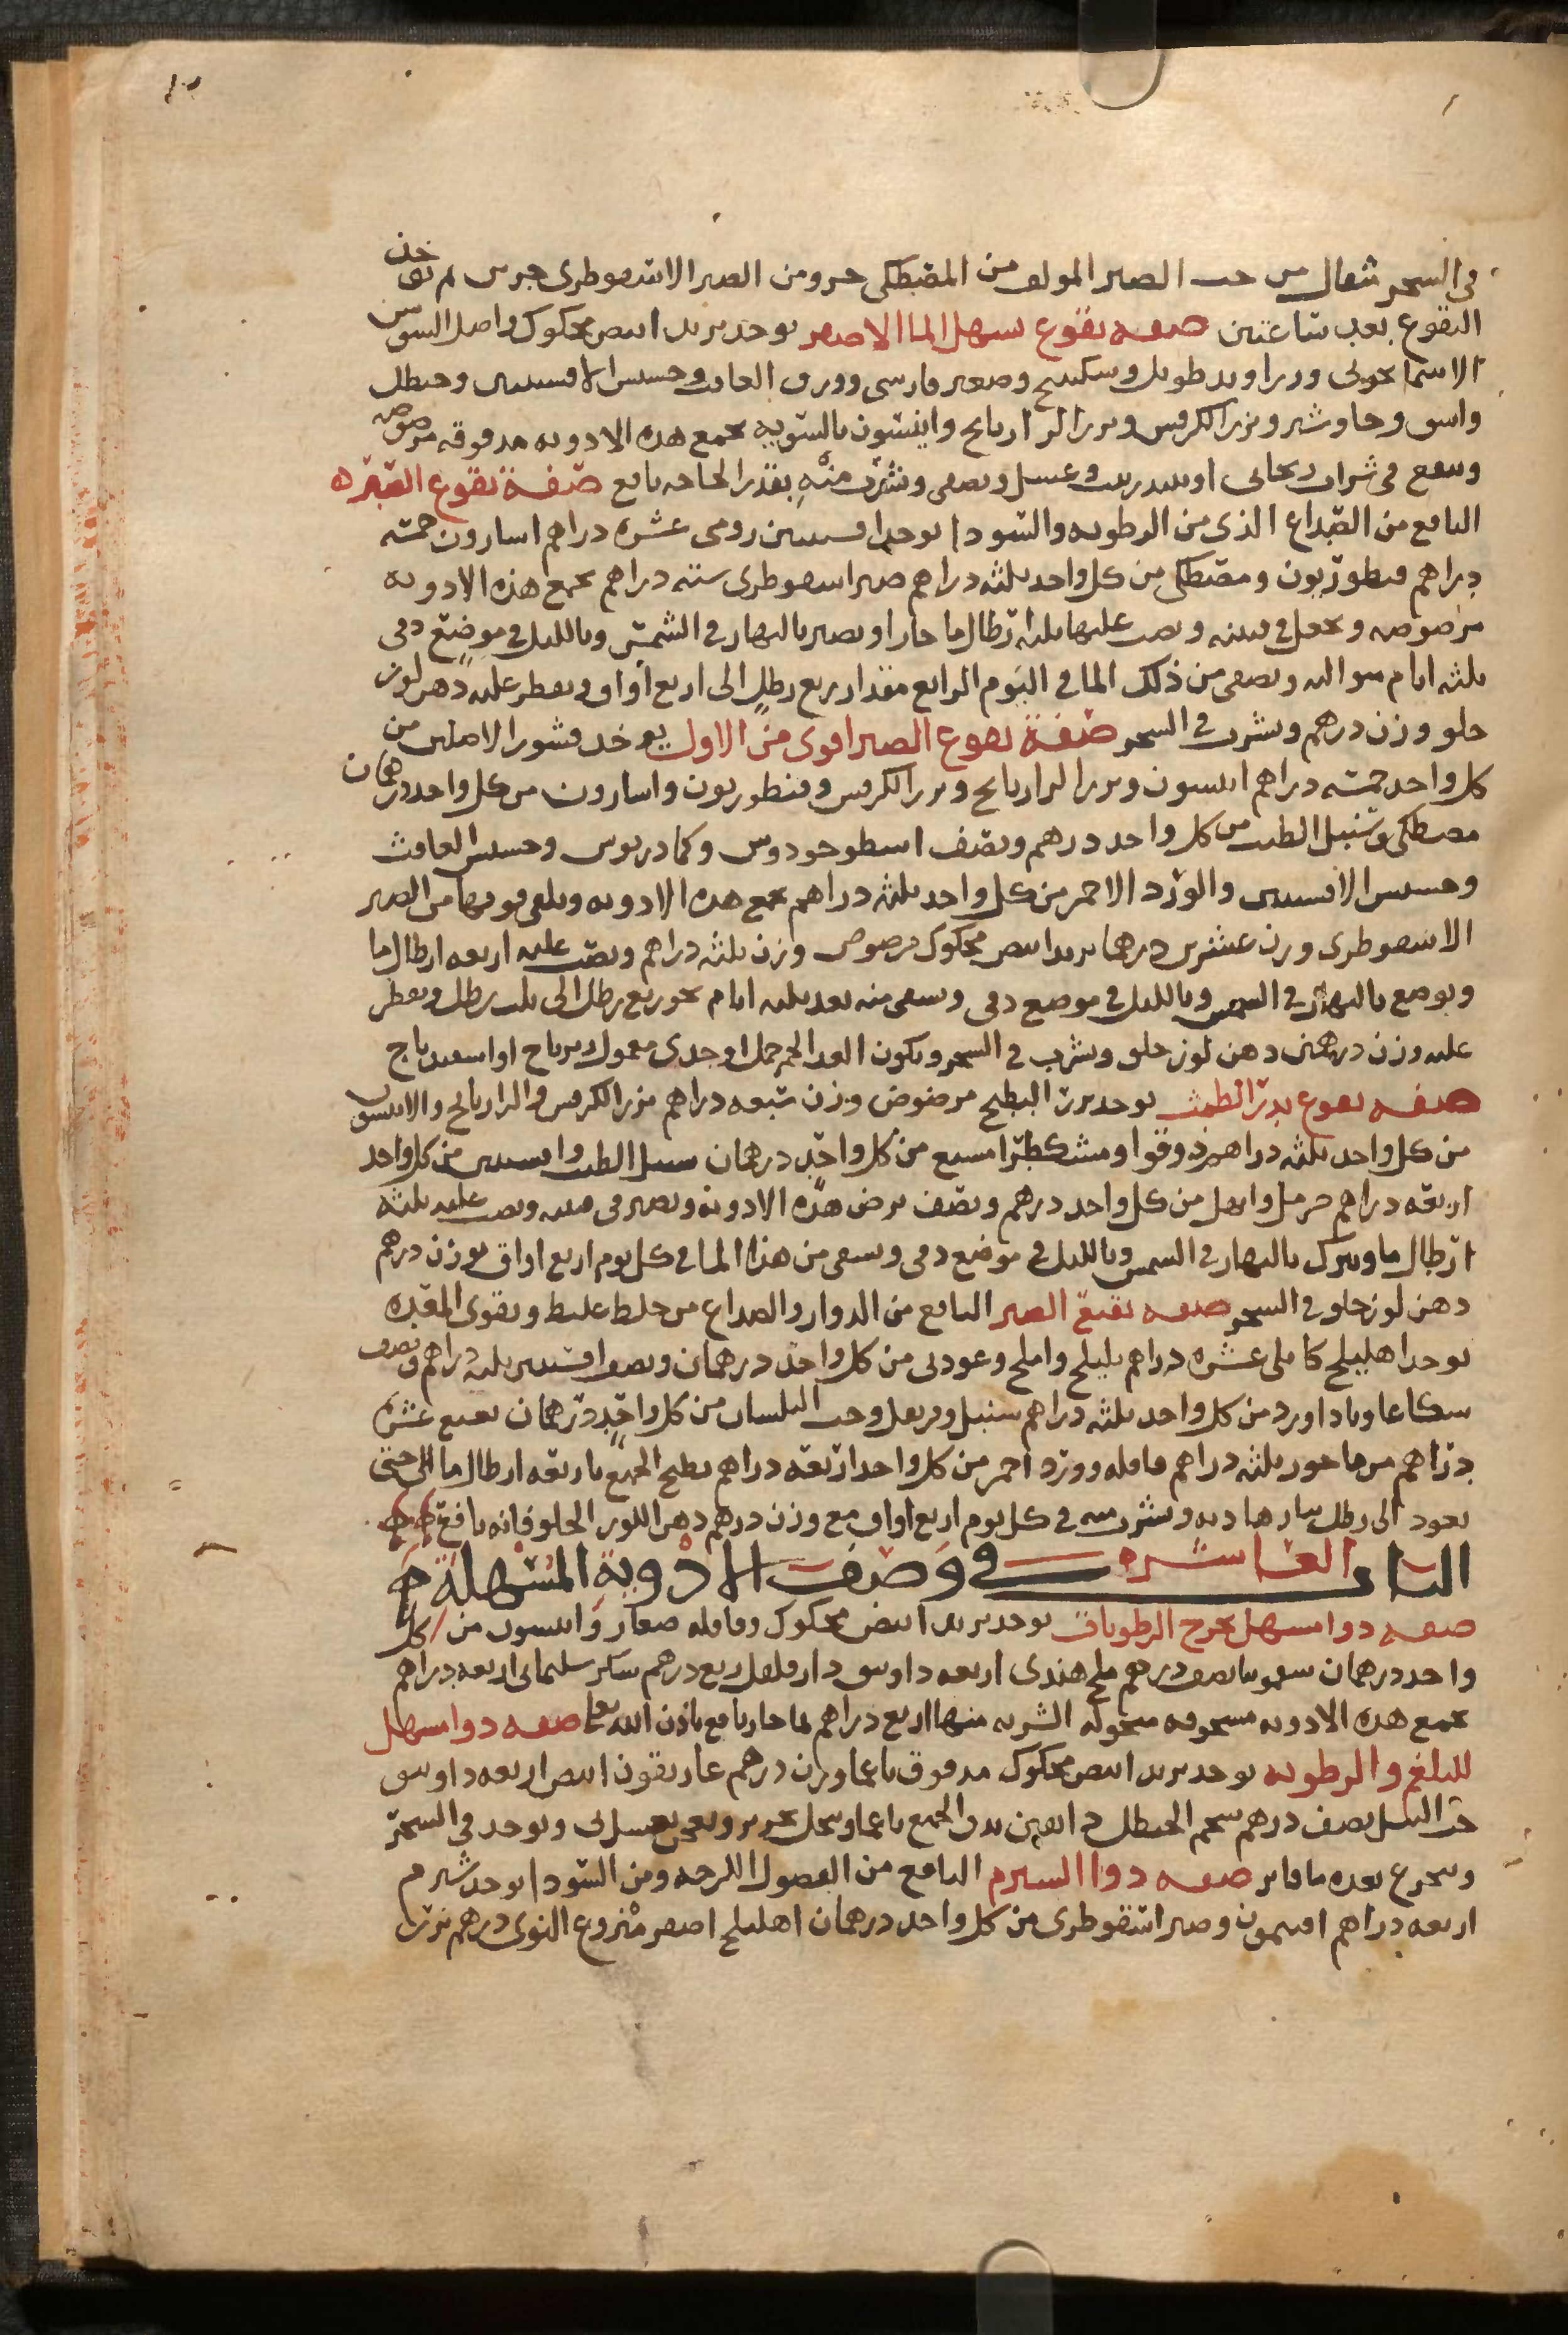 في السحر مثقال من حب الصبر المولف من المصطكى جزو ومن الصبر الاسقوطرى جزين ثم يوخذ
النقوع بعد ساعتين صفه نقوع يسهل الما الاصفر يوخذ تربد ابيض محكوك واصل السوسن
الاسمانجونى وزراوند طويل وسكبينج وصعتر فارسى وورق الغافت وحشيش الافسنتين وحنظل
واشق وجاوشير وبزر الكرفس وبزر الرازيانج واينسون بالسويه تجمع هذه الادويه مدقوقه مرضوضه
وتنقع في شراب ريحانى او نبيذ زبيب وعسل ويصفى ويشرب منه بقدر الحاجه نافع صفة نقوع الصبر
النافع من الصداع الذى من الرطوبه والسودا يوخذ افسنتين رومى عشره دراهم اسارون خمسه
دراهم قنطوريون ومصطكى من كل واحد ثلثه دراهم صبر اسقوطرى سته دراهم تجمع هذه الادويه
مرضوضه وتجعل في قنينه ويصب عليها ثلثه ارطال ما حارا ويصير بالنهار في الشمس وبالليل في موضع دفى
ثلثه ايام متواليه ويصفى من ذلك الما في اليوم الرابع مقدار ربع رطل الى اربع اواق ويقطر عليه دهن لوز
حلو وزن درهم ويشرب في السحر صفة نقوع الصبر اقوى من الاول يوخذ قشور الاصلين من
كل واحد خمسه دراهم انيسون وبزر الرازيانج وبزر الكرفس وقنطوريون واسارون من كل واحد درهمان
مصطكى وسنبل الطيب من كل واحد درهم ونصف اسطوخودوس وكمادريوس وحشيش الغافث
وحشيش الافسنتين والورد الاحمر من كل واحد ثلثه دراهم تجمع هذه الادويه ويلقى فوقها من الصبر
الاسقوطرى وزن عشرين درهما تربد ابيض محكوك مرضوض وزن ثلثه دراهم ويصب عليه اربعه ارطال ما
ويوضع بالنهار في الشمس وبالليل في موضع دفى ويسقى منه بعد ثلثه ايام نحو ربع رطل الى ثلث رطل ويقطر
عليه وزن درهمين دهن لوز حلو ويشرب في السحر ويكون الغدا لحم حمل او جدى معمول زيرباج او اسفيدباج
صفه نقوع يدر الطمث يوخذ بزر البطيخ مرضوض وزن سبعه دراهم بزر الكرفس والرازيانج والانيسون
من كل واحد ثلثه دراهم دوقوا ومشكطرا مشيع من كل واحد درهمان سنبل الطيب وافسنتين من كل واحد
اربعه دراهم حرمل وابهل من كل واحد درهم ونصف ترض هذه الادويه وتصير في قنينه ويصب عليه ثلثه
ارطال ما ويترك بالنهار في الشمس وبالليل في موضع دفى ويسقى من هذا الما في كل يوم اربع اواق بوزن درهم
دهن لوز حلو في السحر صفه نقيع الصبر النافع من الدوار والصداع من خلط غليظ ويقوى المعده
يوخذ اهليلج كابلى عشره دراهم بليلج واملج وعودنى من كل واحد درهمان ونصف افسنتين ثلثه دراهم ونصف
شكاعا وباداورد من كل واحد ثلثه دراهم سنبل وقرنفل وحب البلسان من كل واحد درهمان نعنع عشره
دراهم مر ماحور ثلثه دراهم قاقله وورد احمر من كل واحد اربعه دراهم يطبخ الجميع باربعه ارطال ما الى حتى
يعود الى رطل بنار هاديه ويشرب منه في كل يوم اربع اواق مع وزن درهم دهن اللوز الحلو فانه نافع
الباب العاشر في وصف الادوية المسهلة
صفه دوا مسهل يخرج الرطوبات يوخذ تربد ابيض محكوك وقاقله صغار وانيسون من كل
واحد درهمان سقمونيا نصف درهم ملح هندى اربعه دوانيق دارفلفل ربع درهم سكر سليمانى اربعه دراهم
تجمع هذه الادويه مسحوقه منخوله الشربه منها اربع دراهم بما حار نافع باذن الله تعالى صفه دوا مسهل
للبلغم والرطوبه يوخذ تربد ابيض محكوك مدقوق ناعما وزن درهم غاريقون ابيض اربعه دوانيق
حب النيل نصف درهم شحم الحنظل دانقين يدق الجميع ناعما وينخل بحرير ويعجن بعسل نى ويوخذ في السحر
ويتجرع بعده ما فاتر صفه دوا الشبرم النافع من الفضول اللزجه ومن السودا يوخذ شبرم
اربعه دراهم افتيمون وصبر اسقوطرى من كل واحد درهمان اهليلج اصفر منزوع النوى درهم بزر